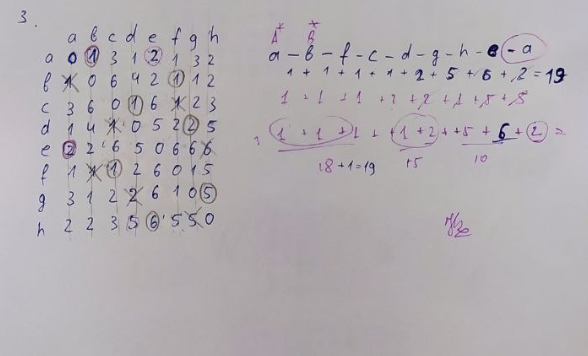 3.
a b c d e f g h
a 0 1 3 1 2 1 3 2
b 1 0 6 4 2 1 1 2
c 3 6 0 1 6 1 2 3
d 1 4 1 0 5 2 2 5
e 2 2 6 5 0 6 6 6
f 1 1 1 2 6 0 1 5
g 3 1 2 2 6 1 0 5
h 2 2 3 5 6 5 5 0
A* B*
a - b - f - c - d - g - h - e - a
1 + 1 + 1 + 1 + 2 + 5 + 6 + 2 = 19
1 + 1 + 1 + 2 + 2 + 1 + 5 + 5
1 + 1 + 1 + 1 + 2 + + 5 + 6 + 2 =
18 + 1 = 19 +5 10